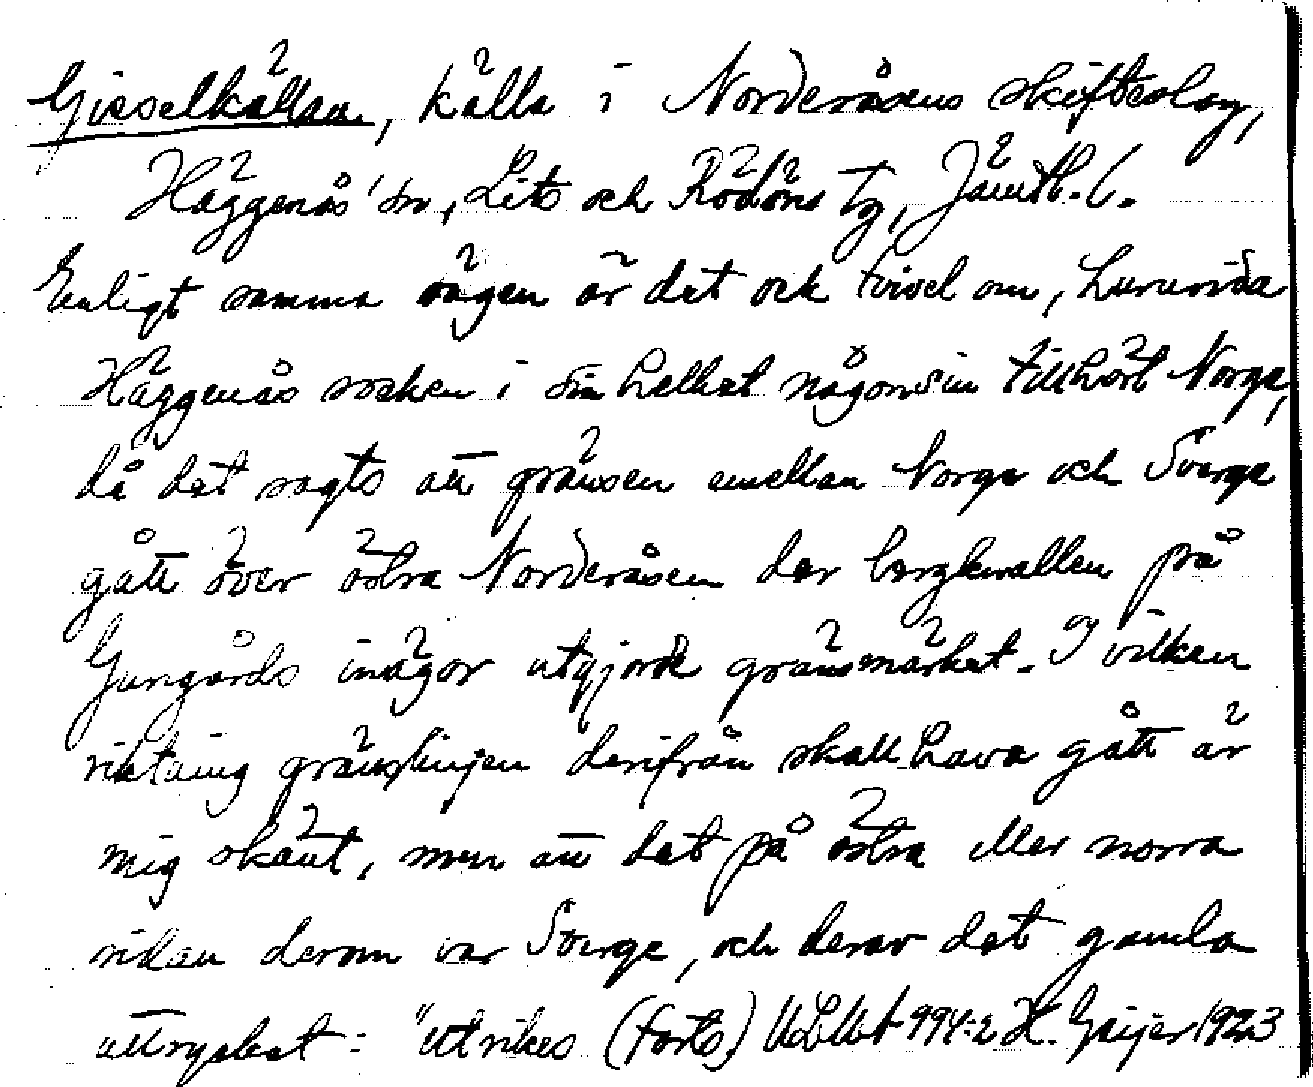 Gisselkällan, källa i Norderåsens skifteslag,
Häggenås' sn, Lits och Rödöns tg, Jämtl. l.
Enligt samma sägen är det ock tvivel om, huruvida
Häggenås socken i sin helhet någonsin tillhört Norge,
då det sagts att gränsen emellan Norge och Sverge
gått över östra Norderåsen der bergknallen på
Gungårds inägor utgjorde gränsmärket. I vilken
riktning gränslinjen derifrån skall hava gått är
mig okänt, men att det på östra eller norra
sidan derom var Sverge, och derav det gamla
uttrycket: "utrikes (forts) ULMA 994:2 H. Geijer 1923